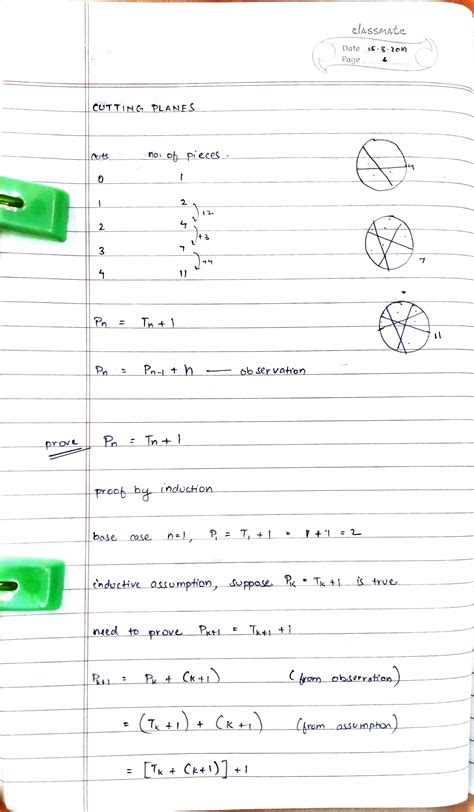 classmate
Date 15.5.2019
Page 1
CUTTING PLANES
cuts no. of pieces.
0 1
1 2
+2
2 4
+3
3 7
+4
4 11
4
7
11
Pn = Tn + 1
Pn = Pn-1 + n — observation
prove Pn = Tn + 1
proof by induction
base case n=1, P1 = T1 + 1 = 1 + 1 = 2
inductive assumption, suppose Pk = Tk + 1 is true
need to prove Pk+1 = Tk+1 + 1
Pk+1 = Pk + (k+1) (from observation)
= (Tk + 1) + (k+1) (from assumption)
= [Tk + (k+1)] + 1